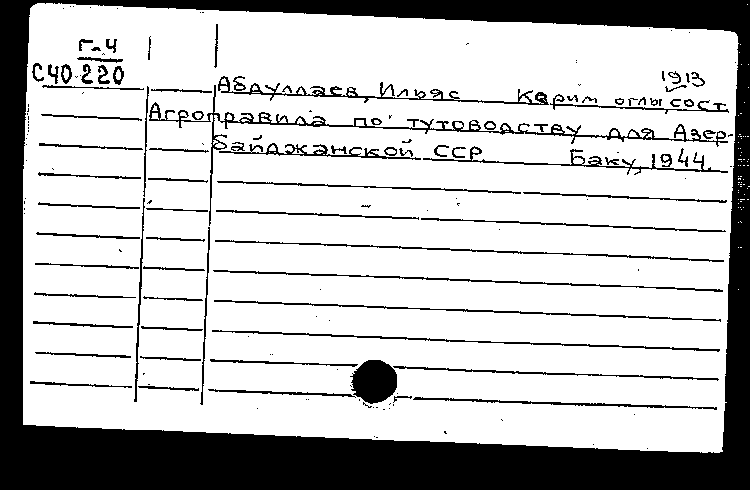 Г-4
С40 220
1913
Абдуллаев, Ильяс Карим оглы, сост.
Агроправила по тутоводству для Азер-
байджанской ССР. Баку, 1944.